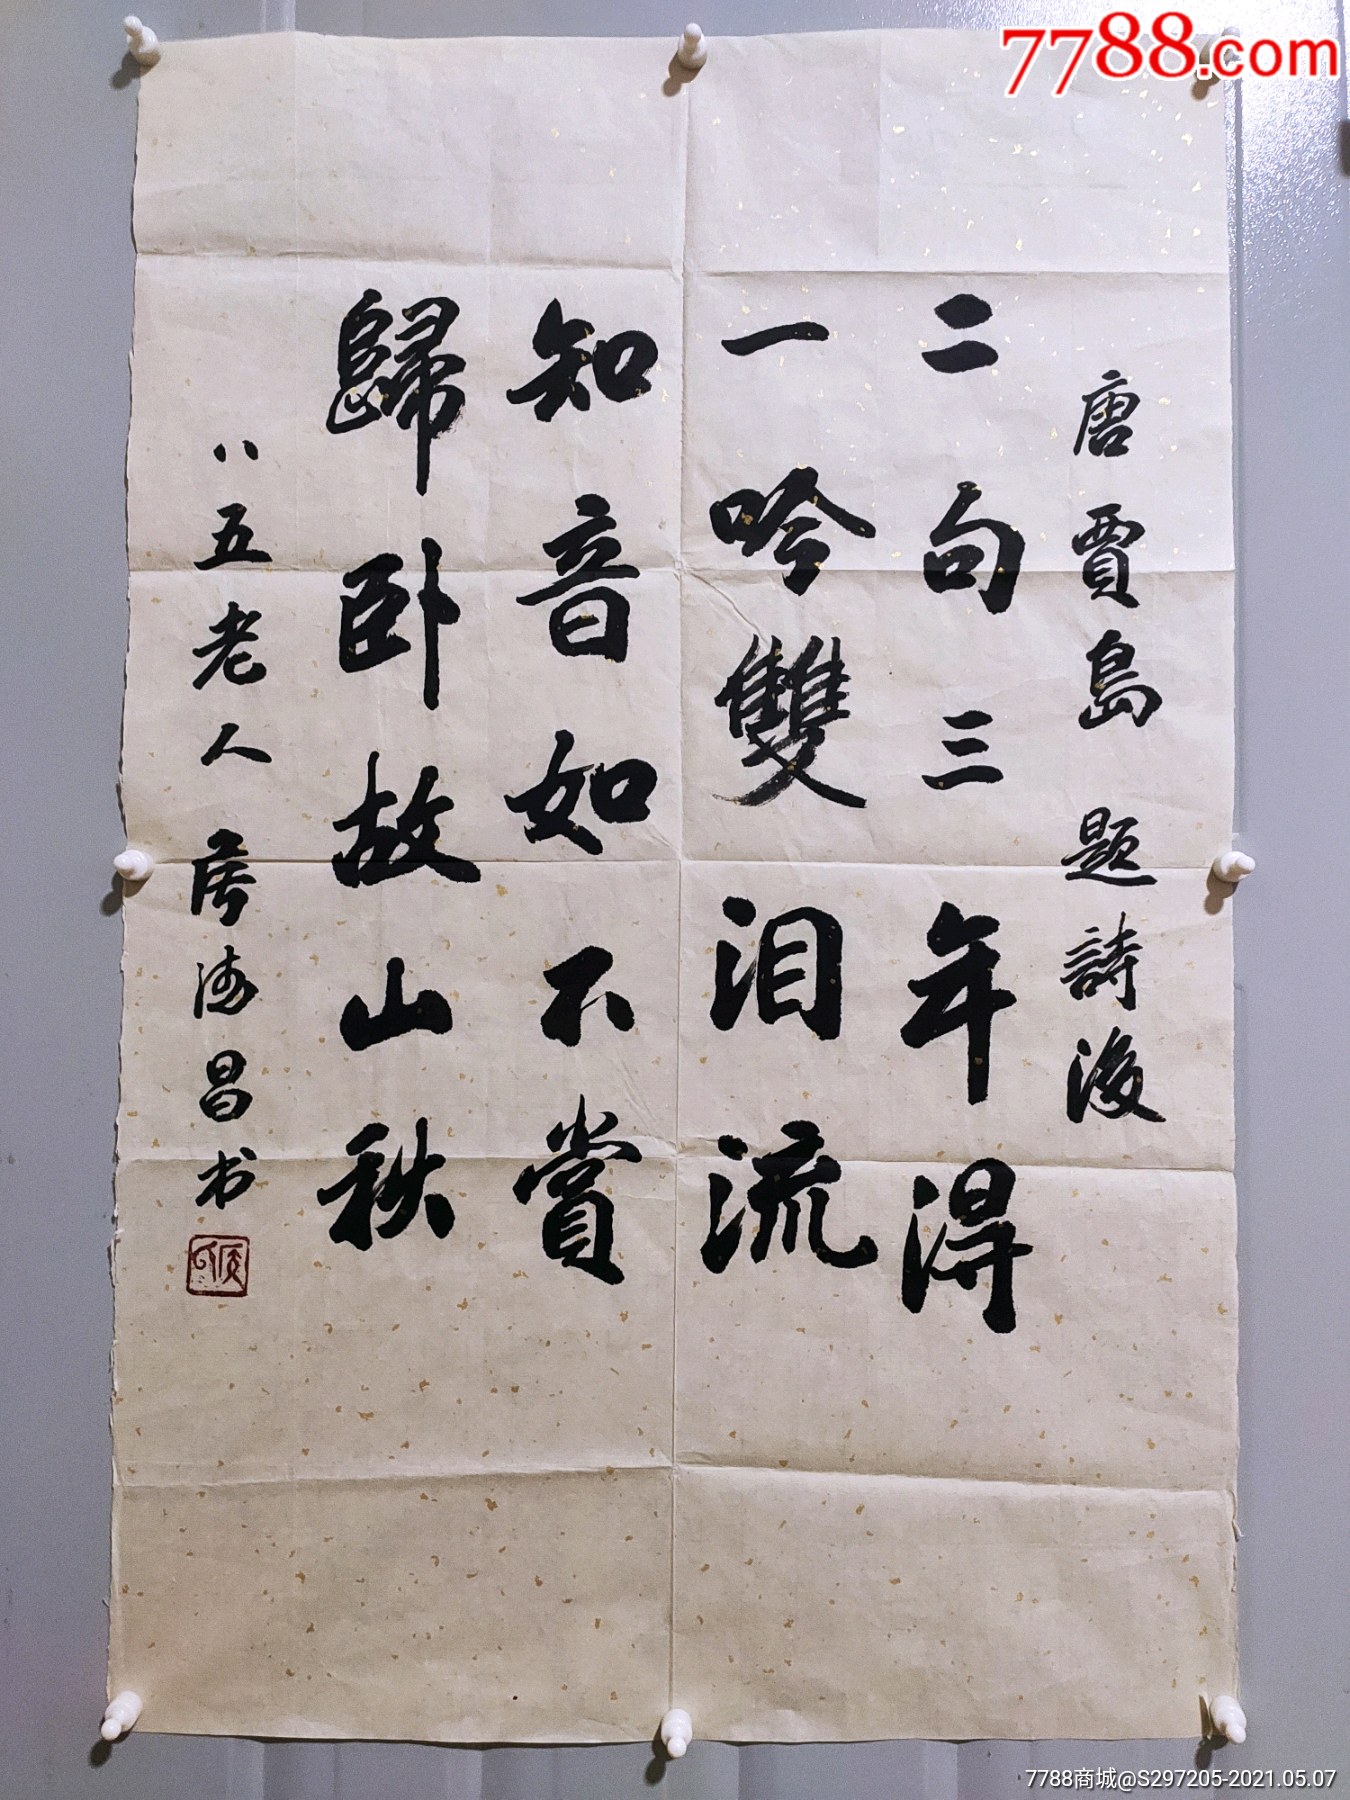 7788.com
唐賈島題詩後
二句三年得
一吟雙泪流
知音如不賞
歸卧故山秋
八五老人海昌书
7788商城@S297205-2021.05.07